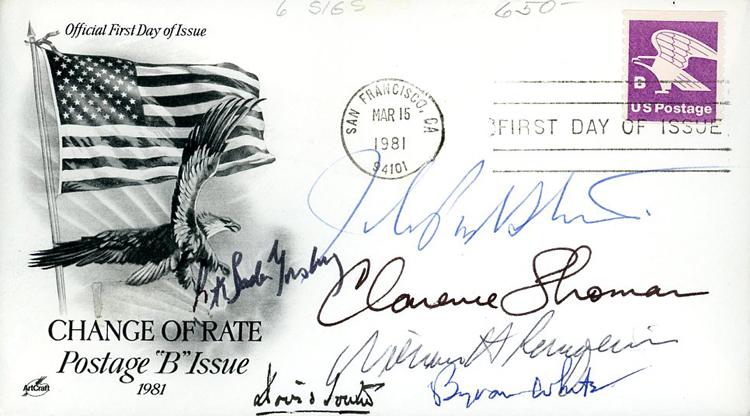 6 SIGS 650-
Official First Day of Issue
B
US Postage
SAN FRANCISCO, CA
MAR 15
1981
94101
FIRST DAY OF ISSUE
John Paul Stevens
Ruth Bader Ginsburg
Clarence Thomas
William H Rehnquist
CHANGE OF RATE
Postage "B" Issue
1981
David Souter
Byron White
ArtCraft